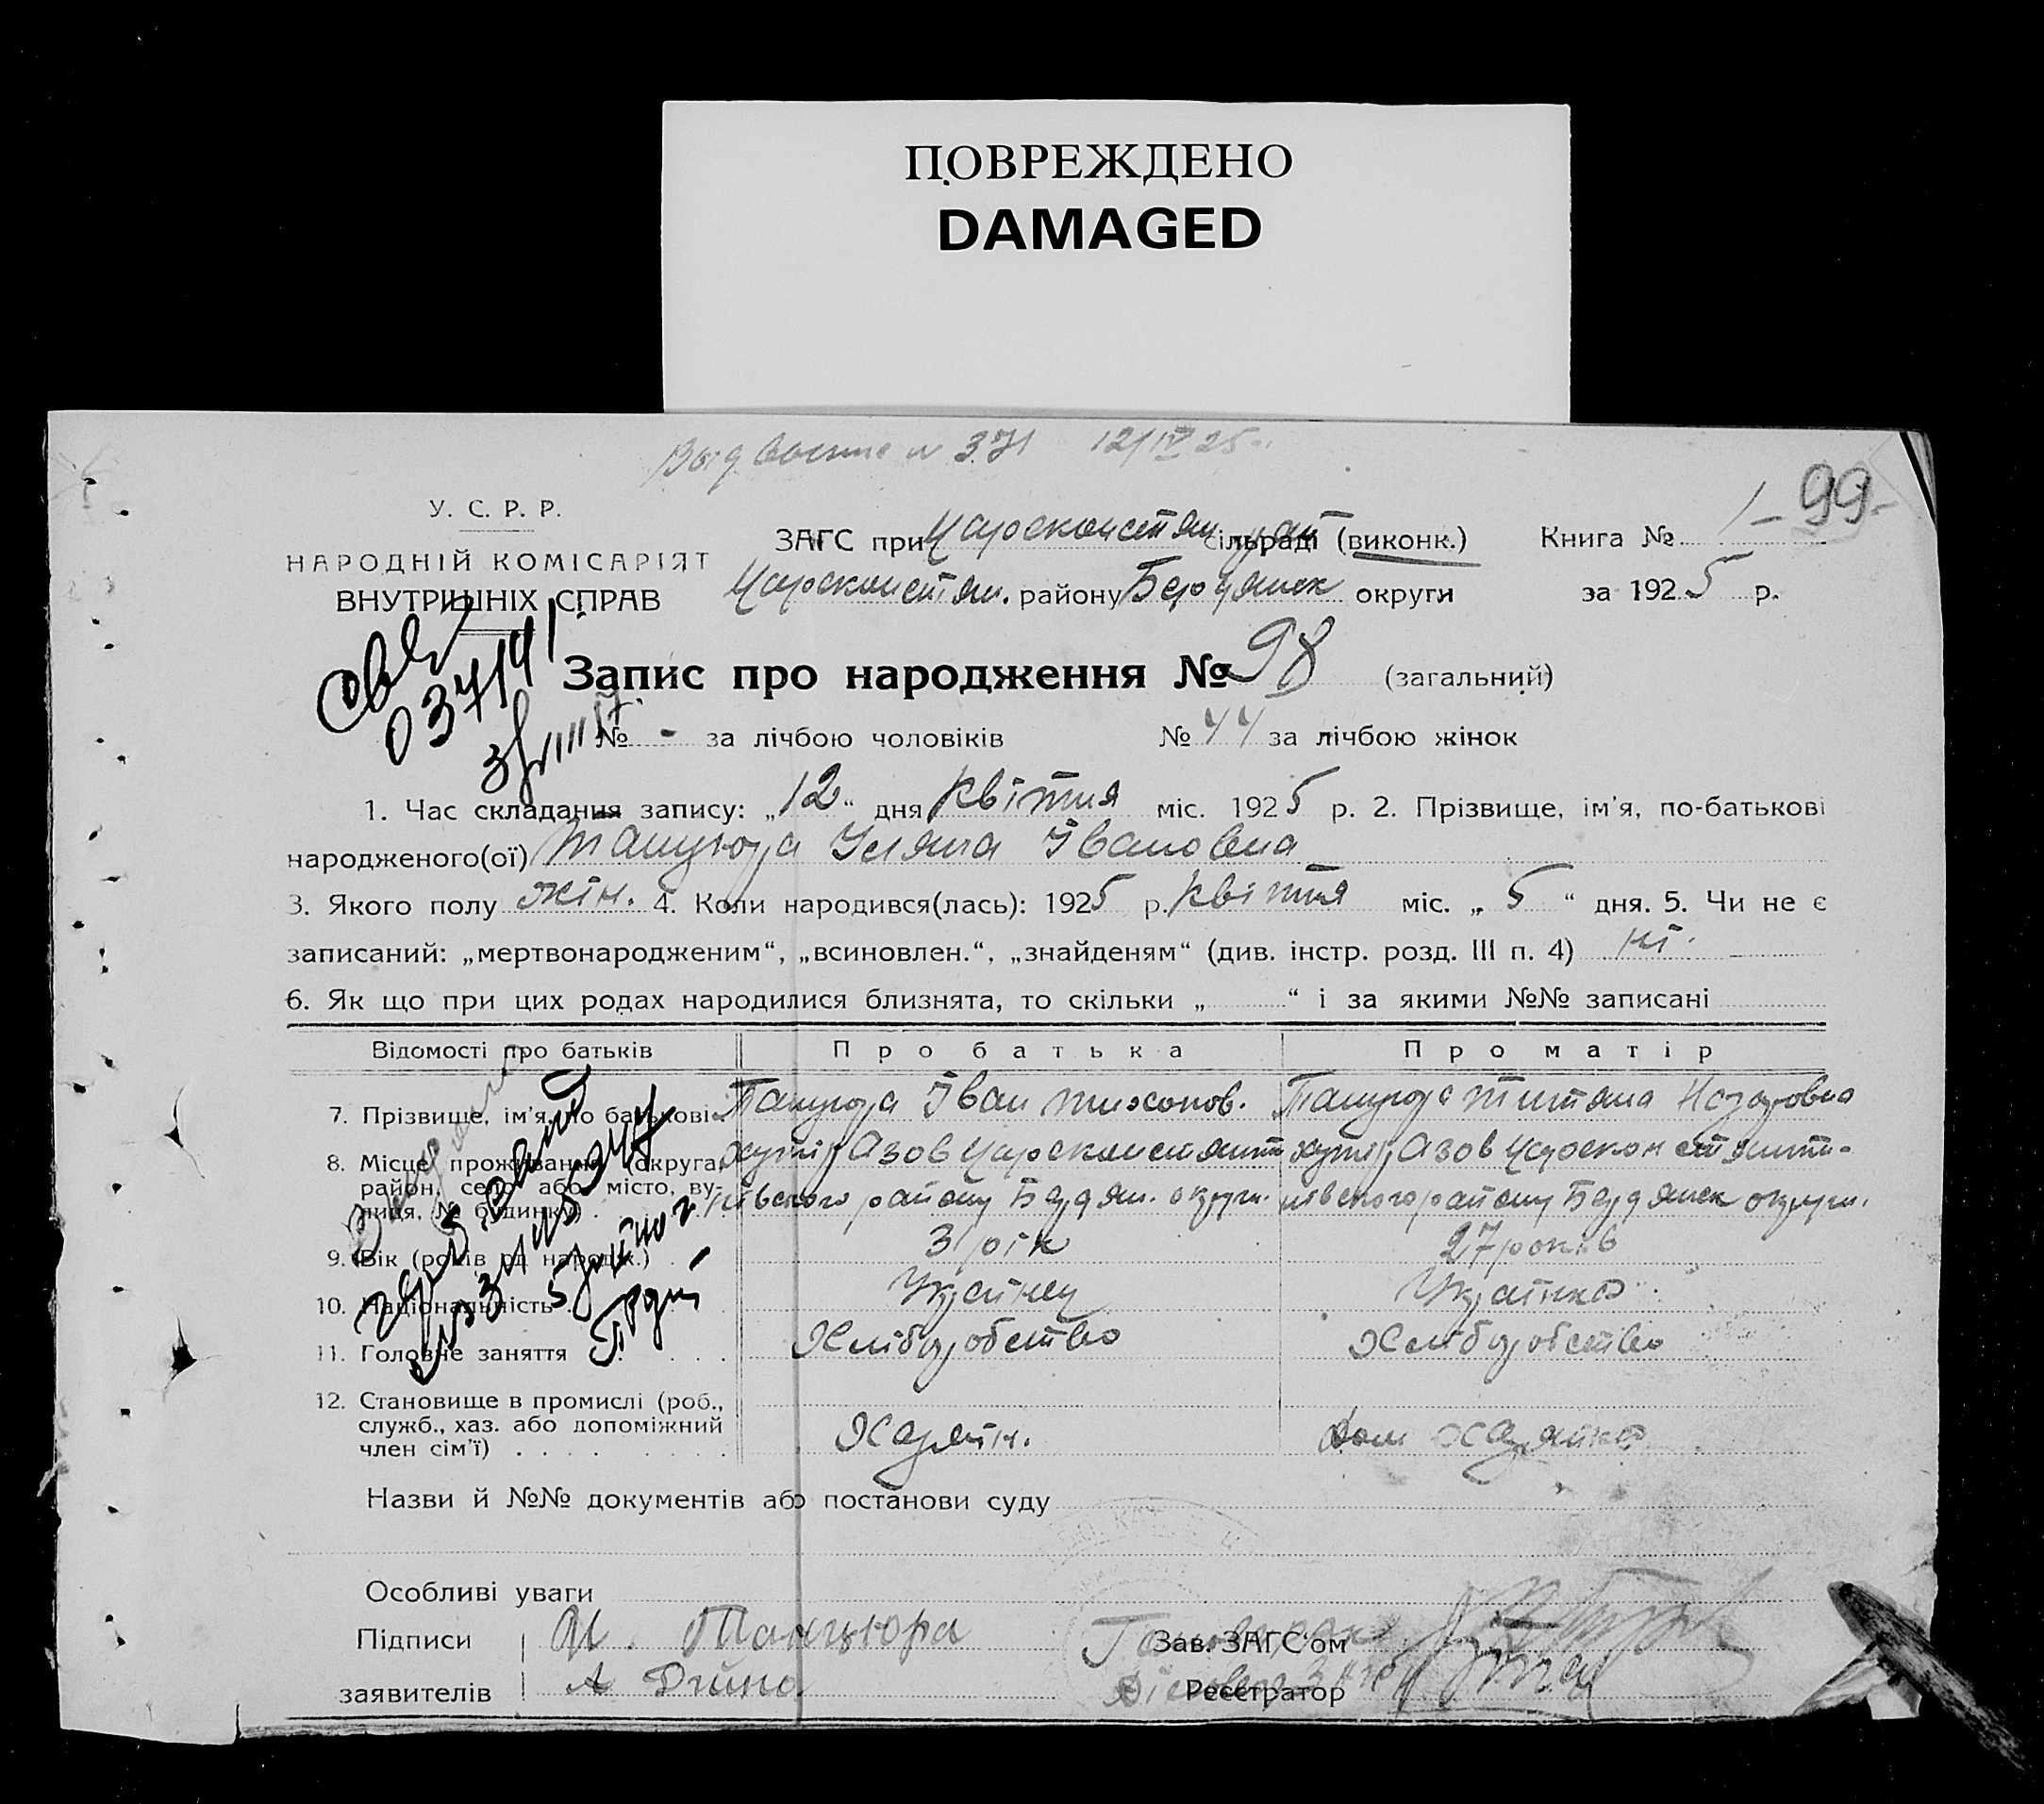 ПОВРЕЖДЕНО
DAMAGED
№ 371 12/IV 25
У. С. Р. Р.
НАРОДНІЙ КОМІСАРІЯТ
ВНУТРІШНІХ СПРАВ
ЗАГС при Цароконстян. сільраді (виконк.)
Цароконстян. району Бердянск округи
Книга № 1 - 99 -
за 1925 р.
Запис про народження № 98 (загальний)
№ - за лічбою чоловіків № 44 за лічбою жінок
1. Час складання запису: „12“ дня Квітня міс. 1925 р. 2. Прізвище, ім'я, по-батькові
народженого(ої) Танцюра Уляна Івановна
3. Якого полу жін. 4. Коли народився(лась): 1925 р. Квітня міс. „5“ дня. 5. Чи не є
записаний: „мертвонародженим“, „всиновлен.“, „знайденям“ (див. інстр. розд. III п. 4) ні.
6. Як що при цих родах народилися близнята, то скільки „ “ і за якими №№ записані
Відомості про батьків Про батька Про матір
7. Прізвище, ім'я, по батькові Танцюра Іван Тихонов. Танцюра Титяна Назаровна
8. Місце проживання (округа, район, село або місто, вулиця, № будинку)
хутір Азов Царсконстянти
нівського району Бердян. округи.
хутір Азов Царсконстянти-
нівского району Бердянск округи.
9. Вік (років від народж.) 31 рік 27 років
10. Національність Українец Українка
11. Головне заняття Хліборобство Хліборобство
12. Становище в промислі (роб., служб., хаз. або допоміжний член сім'ї) Хазяїн. Дом хазяйка
Назви й №№ документів або постанови суду
Особливі уваги
Підписи И. Танцюра Зав. ЗАГС'ом
заявителів А Дейна Реєстратор